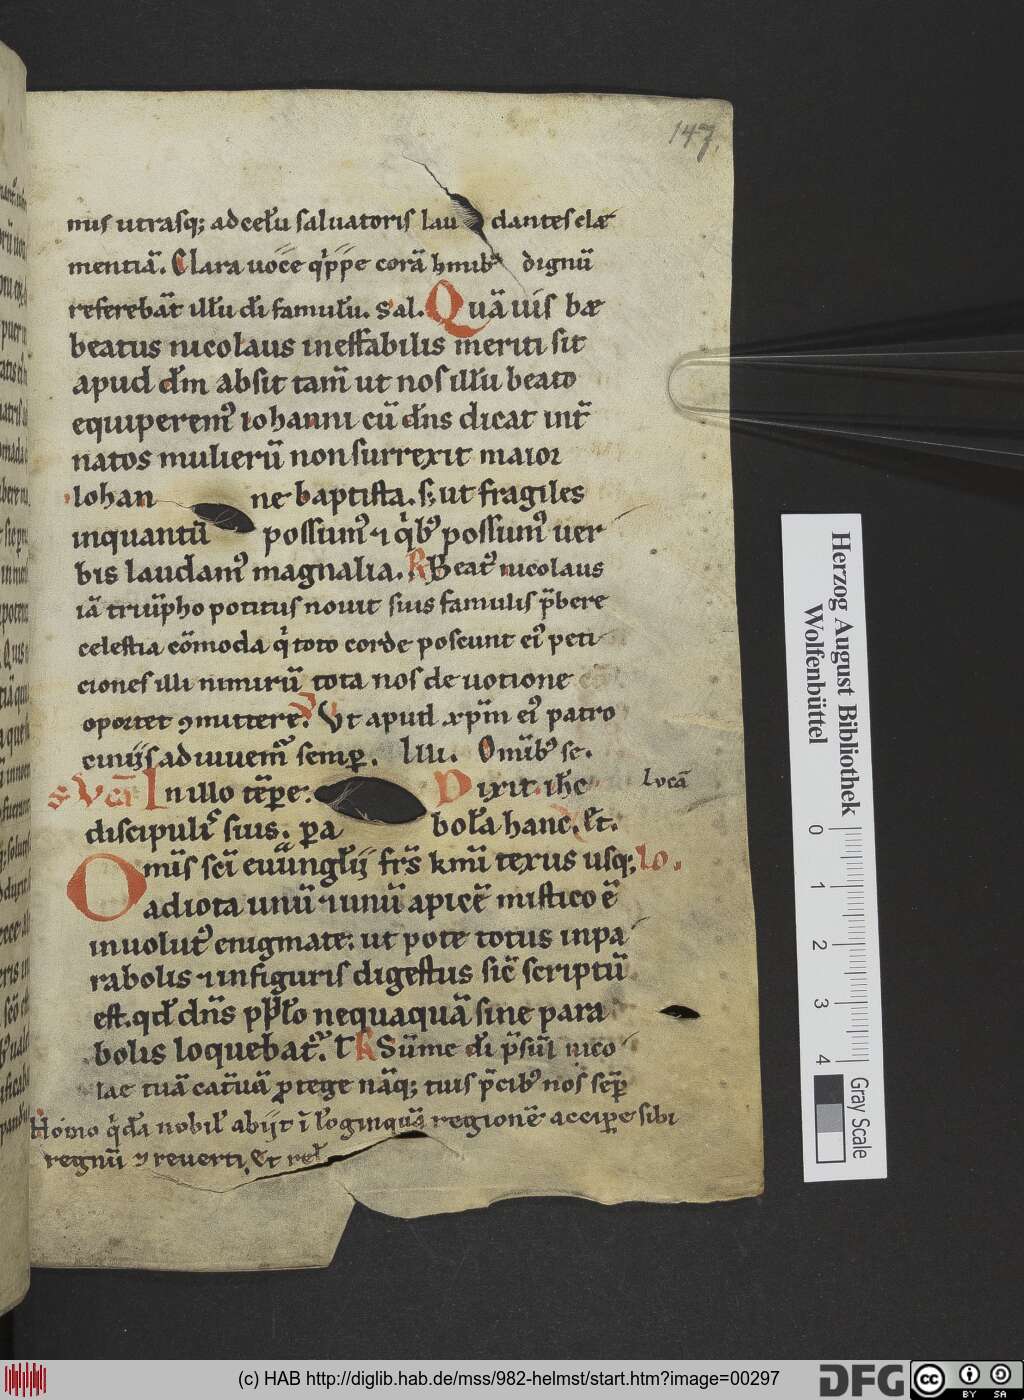 147.
mis utrasq; ad cel̄u saluatoris lau dantes clæ
mentiā. Clara uoce q̇ppe corā hmibꝰ dignū
referebāt ill̄u di famul̄u. Sal. Quā uis bæ
beatus nicolaus ineffabilis meriti sit
apud dm̄ absit tam̄ ut nos ill̄u beato
equiperemꝰ iohanni cū dn̄s dicat int̄
natos mulierū non surrexit maior
Iohan ne baptista. s; ut fragiles
inquantū possumꝰ ⁊ q̇bꝰ possumꝰ uer
bis laudamꝰ magnalia. R Beatꝰ nicolaus
iā triūpho potitus nouit suis famulis p̄bere
celestia cōmoda q̇ toto corde poscunt eiꝰ peti
ciones illi nimirū tota nos deuotione
oportet ꝯmittere. V Ut apud xp̄m eiꝰ patro
ciniis adiuuemꝰ semꝑ. Omībꝰ se.
s Vcā In illo tēꝑe. Dixit ih̄c Lucā
discipulis suis. ꝑa bol̄a hanc. &t.
Omīs sc̄i euūngl̄ij fr̄s kmī texus usq; Lo.
ad iota unū ⁊ unū apicē mistico ē
inuolutꝰ enigmate: ut pote totus in pa
rabolis ⁊ in figuris digestus sic̄ scriptū
est. qd̄ dn̄s pp̄lo nequaquā sine para
bolis loquebat᷑. T R Sūme di p̄sul nico
lae tuā cat̄uā ꝓtege nāq; tuis p̄cibꝰ nos sēꝑ
Homo q̇dā nobil̄ abijt ī l̄oginquā regionē acciꝑe sibi
regnū ⁊ reuerti. Et rel̄.
Herzog August Bibliothek
Wolfenbüttel
0 1 2 3 4
Gray Scale
(c) HAB http://diglib.hab.de/mss/982-helmst/start.htm?image=00297
DFG
cc BY SA